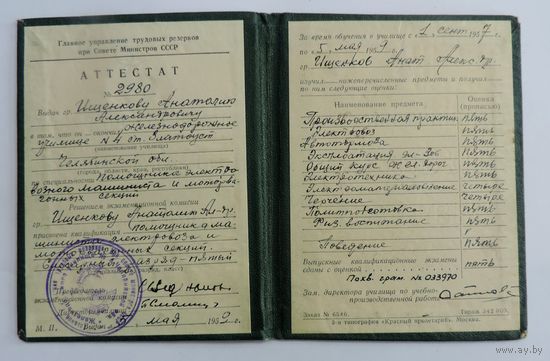 Главное управление трудовых резервов
при Совете Министров СССР
АТТЕСТАТ
№ 2980
Выдан гр. Ищенкову Анатолию
Александровичу
в том, что он окончил Железнодорожное
училище № 4 ст. Златоуст
Челябинской обл.
(города, области, края, республики)
по специальности помощник электро
возного машиниста и моторва
гонных секций
Решением экзаменационной комиссии
гр. Ищенкову Анатолию Ал-др.
присвоена квалификация помощника ма-
шиниста электровоза и
моторвагонных секций
Председатель
экзаменационной комиссии
Директор
М. П.
Выдан " " мая 1959 г.
За время обучения в училище с 1 сент 1957 г.
по 5 мая 1959 г.
гр. Ищенков Анат Алекс др.
изучил нижеперечисленные предметы и получил
по ним следующие оценки:
Наименование предметов
Оценка
(прописью)
Производственная практика пять
Электровоз пять
Автотормоза пять
Эксплоатация эл-воз пять
Общий курс жел дорог пять
Электротехника пять
Электроматериаловедение четыре
Черчение четыре
Политподготовка пять
Физ. воспитание пять
Поведение пять
Выпускные квалификационные экзамены
сданы с оценкой пять
Похв. грам. № 033970
Зам. директора училища по учебно-
производственной работе
Заказ № 6586.
Тираж 342 000.
2-я типография «Красный пролетарий». Москва.
ay.by